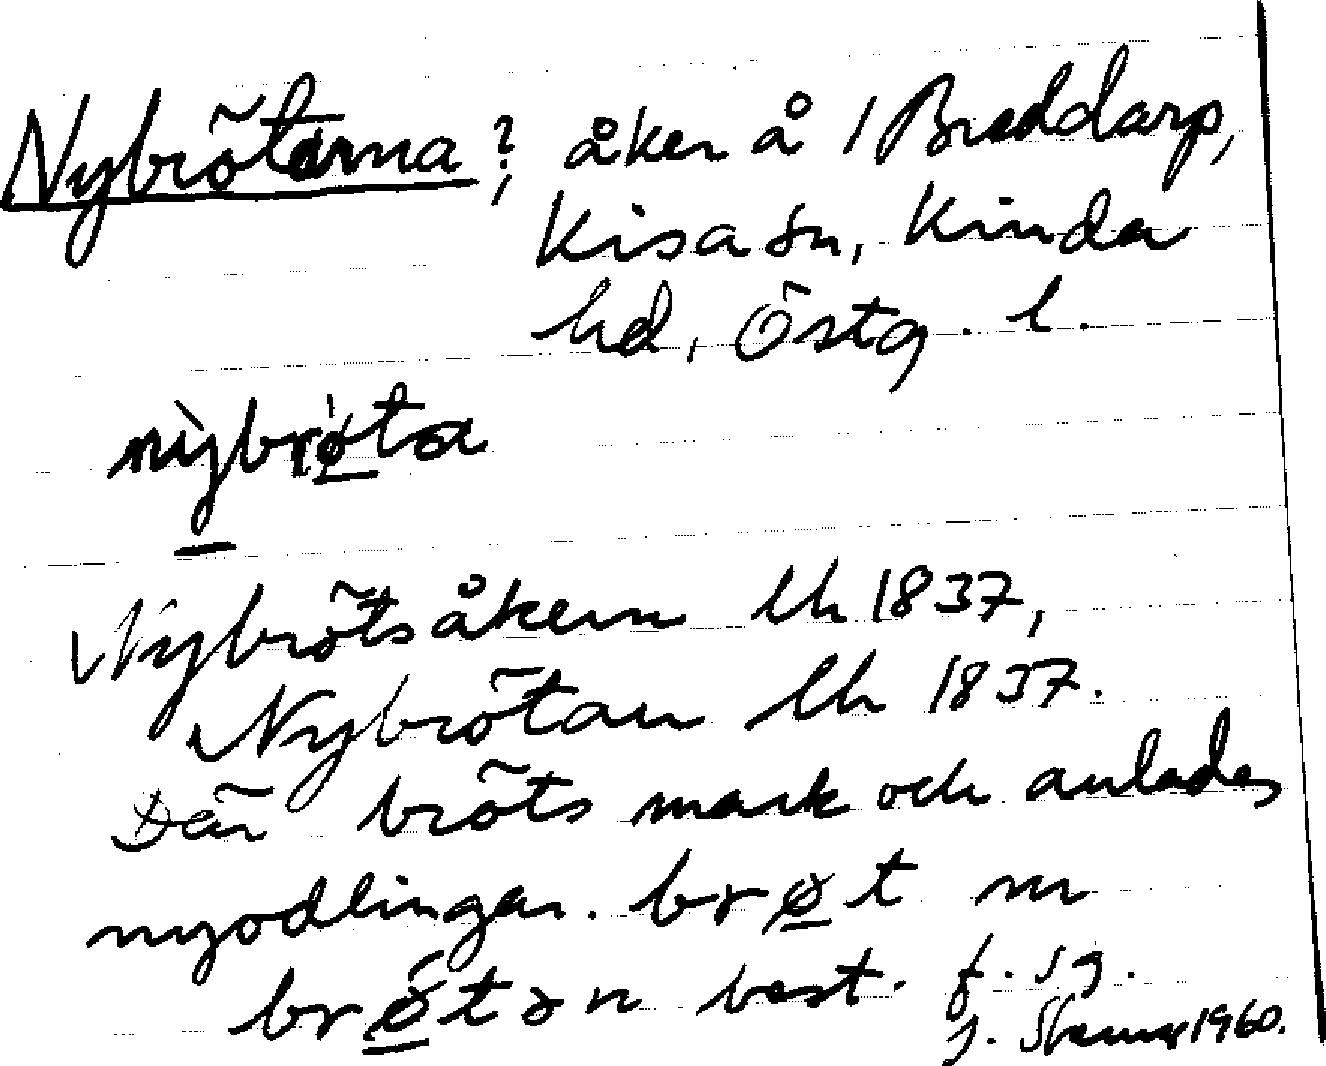 Nybrötarna?, åker å / Breddarp,
Kisa sn, Kinda
hd, Östg. l.
nỳbrø̀ta
Nybrötsåkern lh 1837,
Nybrötan lh 1837.
Där bröts mark och anlades
nyodlingar. brøt m
brǿtən best. f. sg.
1960.